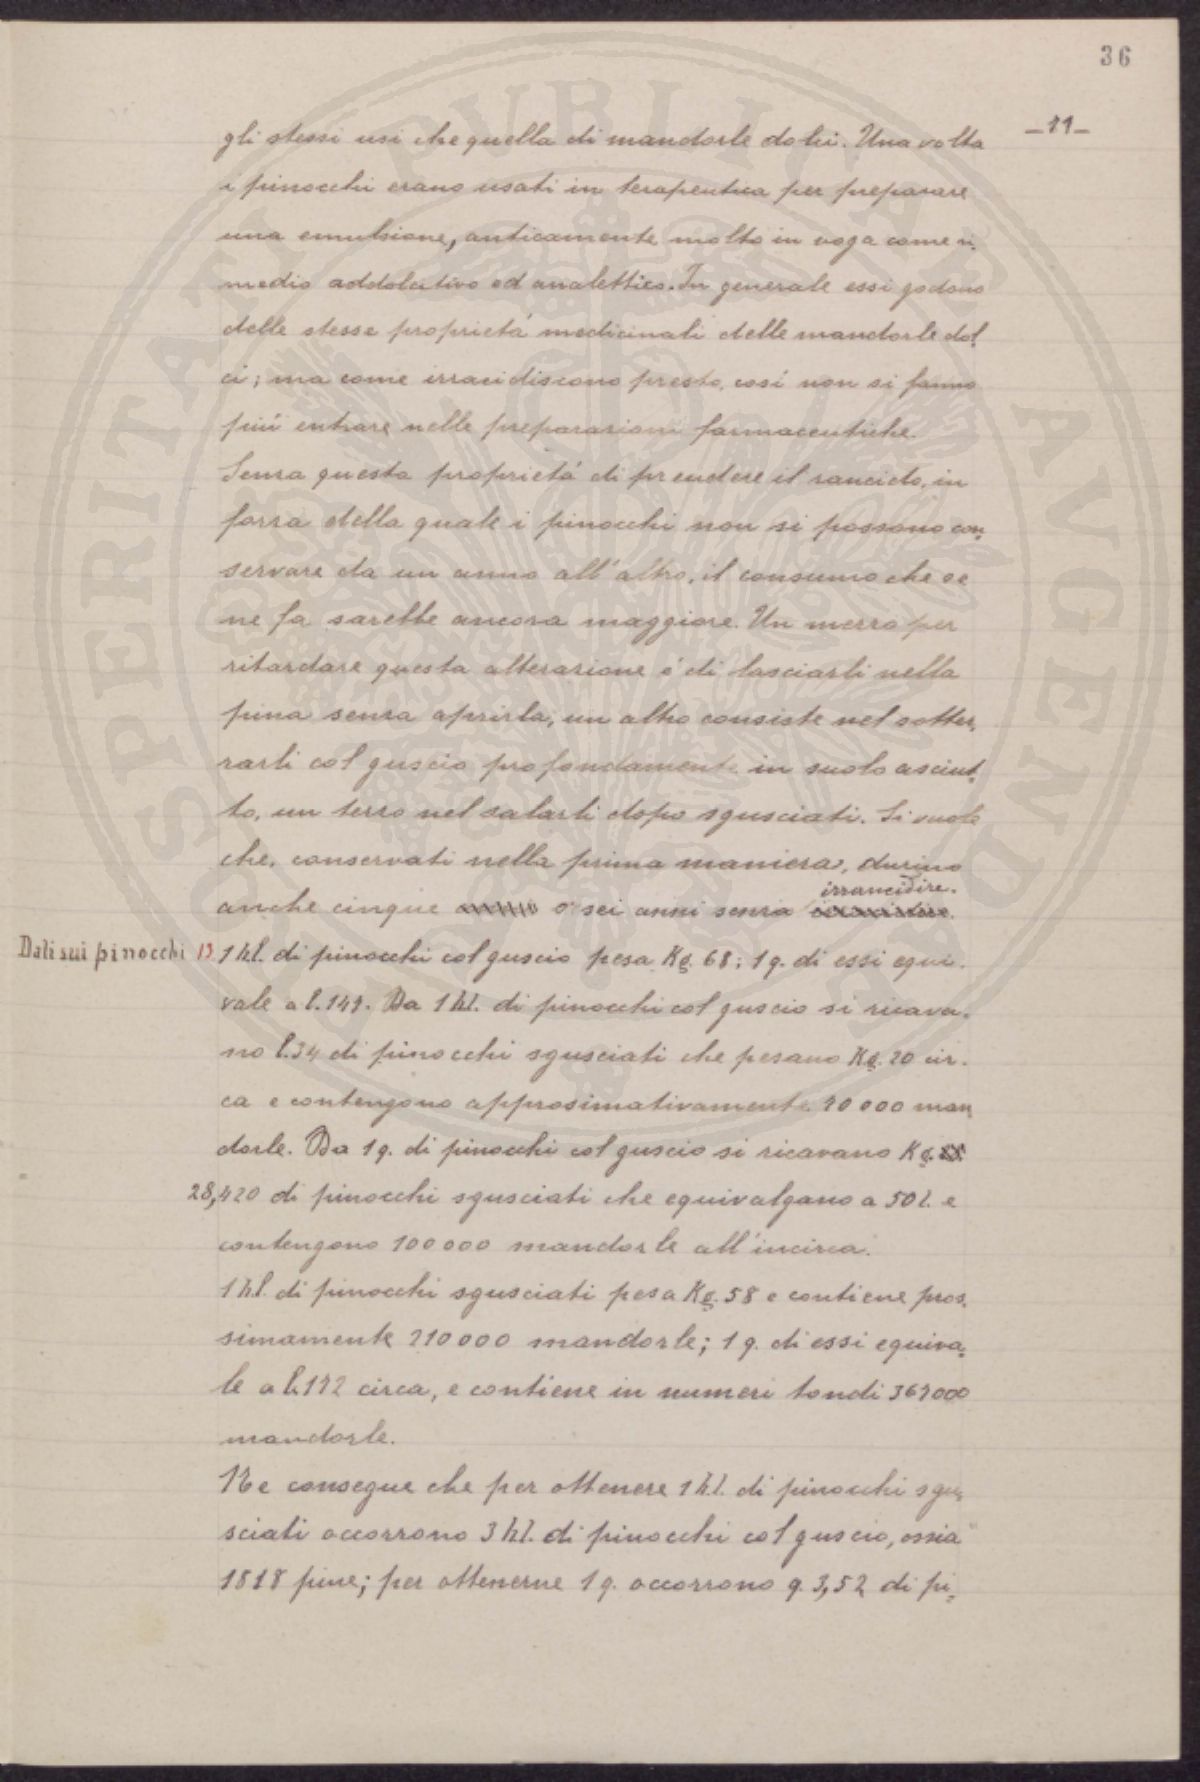 36
_11_
gli stessi usi che quella di mandorle dolci. Una volta
i pinocchi erano usati in terapeutica per preparare
una emulsione, anticamente molto in voga come ri-
medio addolcitivo ed analettico. In generale essi godono
delle stesse proprietá medicinali delle mandorle dol-
ci; ma come irrancidiscono presto, cosí non si fanno
piú entrare nelle preparazioni farmaceutiche.
Senza questa proprietá di prendere il rancido, in
forza della quale i pinocchi non si possono con-
servare da un anno all'altro, il consumo che se
ne fa sarebbe ancora maggiore. Un mezzo per
ritardare questa alterazione é di lasciarli nella
pina senza aprirla, un altro consiste nel sotter-
rarli col guscio profondamente in suolo asciut-
to, un terzo nel salarli dopo sgusciati. Si vuole
che, conservati nella prima maniera, durino
irrancidire.
anche cinque o sei anni senza
Dati sui pinocchi 1) 1 hl. di pinocchi col guscio pesa Kg. 68; 1 q. di essi equi-
vale a l. 147. Da 1 hl. di pinocchi col guscio si ricava-
no l. 34 di pinocchi sgusciati che pesano Kg. 20 cir-
ca e contengono approssimativamente 70000 man
dorle. Da 1 q. di pinocchi col guscio si ricavano Kg.
28,420 di pinocchi sgusciati che equivalgano a 50 l. e
contengono 100000 mandorle all'incirca.
1 hl. di pinocchi sgusciati pesa Kg. 58 e contiene pros-
simamente 210000 mandorle; 1 q. di essi equiva-
le a l. 172 circa, e contiene in numeri tondi 362000
mandorle.
Ne consegue che per ottenere 1 hl. di pinocchi sgu-
sciati occorrono 3 hl. di pinocchi col guscio, ossia
1818 pine; per ottenerne 1 q. occorrono q. 3,52 di pi-